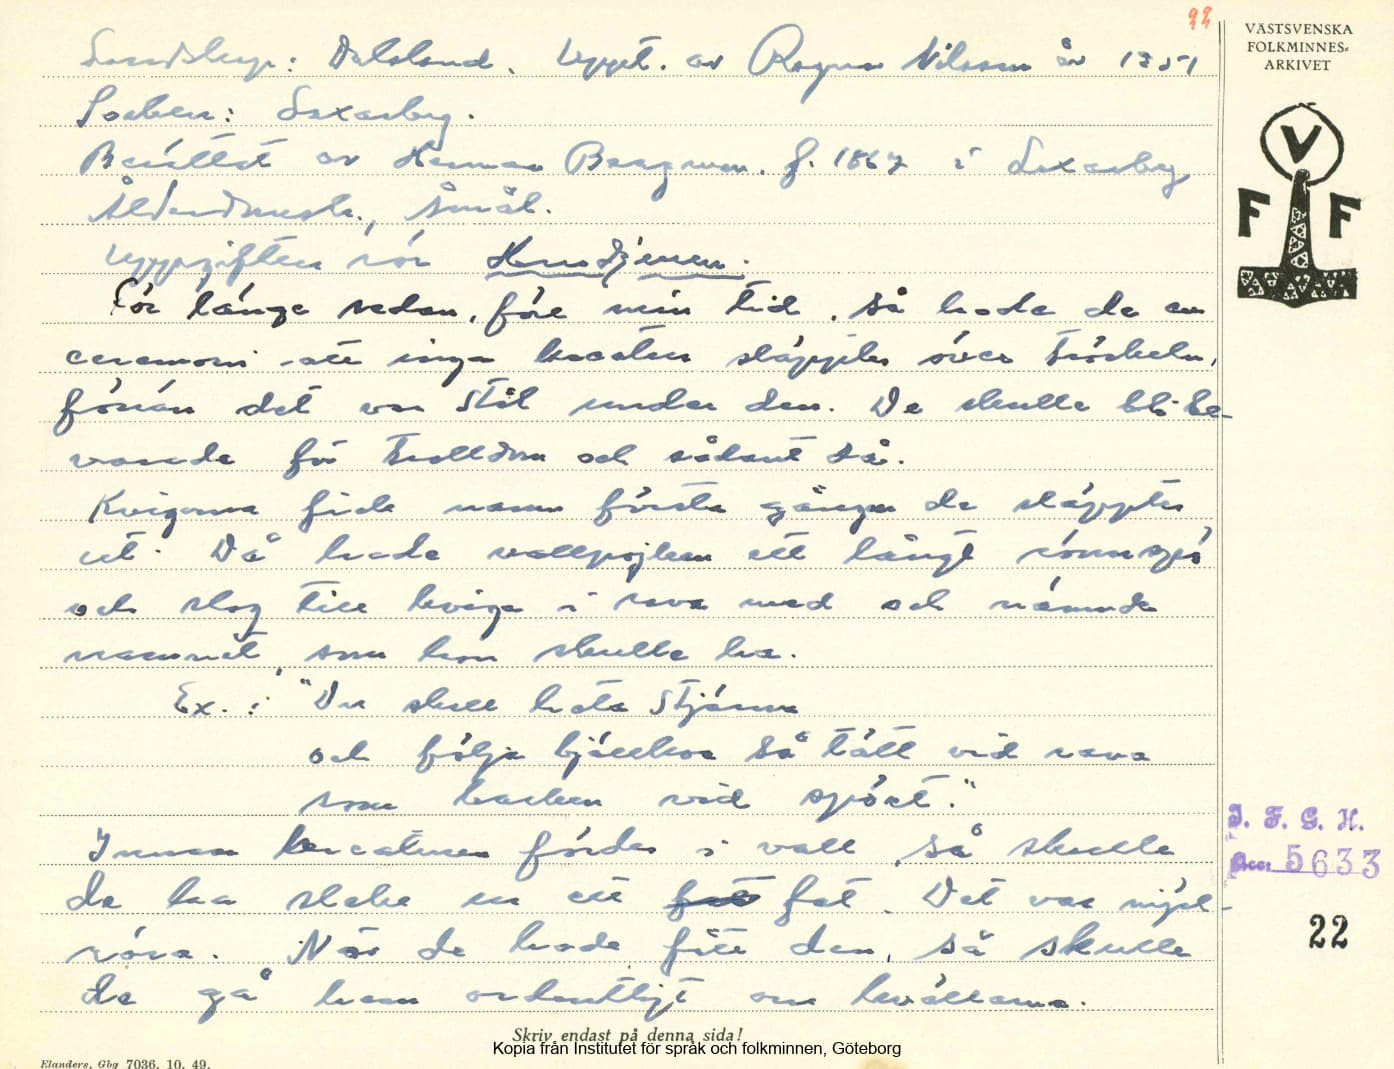 22
Landskap: Dalsland. Uppt. av Ragnar Nilsson år 1951
Socken: Laxarby.
Berättat av Herman Bergman. f. 1867 i Laxarby
Ålderdomsh., Åmål.
Uppgiften rör
För länge sedan, före min tid, så hade de en
ceremoni att inga kreaturen släpptes över tröskeln,
förrän det var stål under den. De skulle bli be-
varade för trolldom och sådant då.
Kvigorna fick namn första gången de släpptes
ut. Då hade vallpojken ett långt rönnspö
och slog till kviga i rova med och nämnde
namnet, som hon skulle ha.
Ex.: "Du skall heta Stjärna
och följa bjällkoa så tätt vid rova
som barken vid spöet."
Innan kreaturen fördes i vall, så skulle
de ha slake ur ett fat. Det var mjöl-
röra. När de hade fått den, så skulle
de gå hem ordentligt om kvällarna.
Skriv endast på denna sida!
Kopia från Institutet för språk och folkminnen, Göteborg
Elanders, Gbg 7036. 10. 49.
VÄSTSVENSKA
FOLKMINNES-
ARKIVET
V
F F
I. F. G. H.
Acc. 5633
22